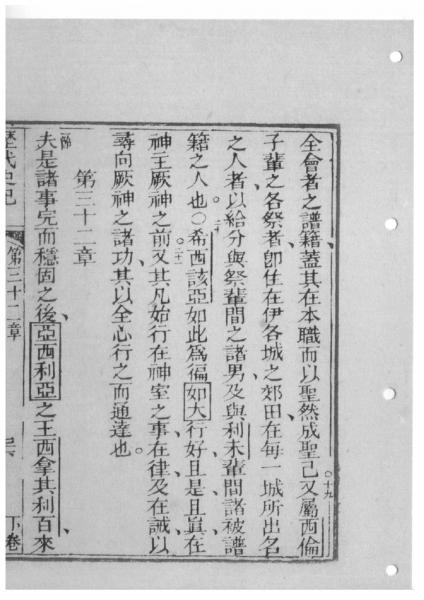 全會者之譜籍蓋其在本職而以聖然成聖己又屬西倫
子輩之各祭者卽住在伊各城之郊田在每一城所出名
之人者以給分與祭輩間之諸男及與利未輩間諸被譜
籍之人也○希西該亞如此爲徧如大行好且是且眞在
神主厥神之前又其凡始行在神室之事在律及在誡以
尋向厥神之諸功其以全心行之而通達也
第三十二章
夫是諸事完而穩固之後亞西利亞之王西拿其利百來
歷代史記 第三十二章 下卷
十九
二十
二一